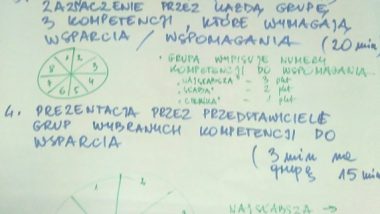 ZAZNACZENIE PRZEZ KAŻDĄ GRUPĘ
3 KOMPETENCJI, KTÓRE WYMAGAJĄ
WSPARCIA / WSPOMAGANIA
(20 min)
1 2
8 3
7 4
6 5
• GRUPA WYPISUJE NUMERY
KOMPETENCJI DO WSPOMAGANIA
• "NAJSŁABSZA" - 3 pkt
• "SŁABA" - 2 pkt
- 1 pkt
4. PREZENTACJA PRZEZ PRZEDSTAWICIELI
GRUP WYBRANYCH KOMPETENCJI DO
WSPARCIA
(3 min na
grupę 15 min
1 2
NAJSŁABSZA →